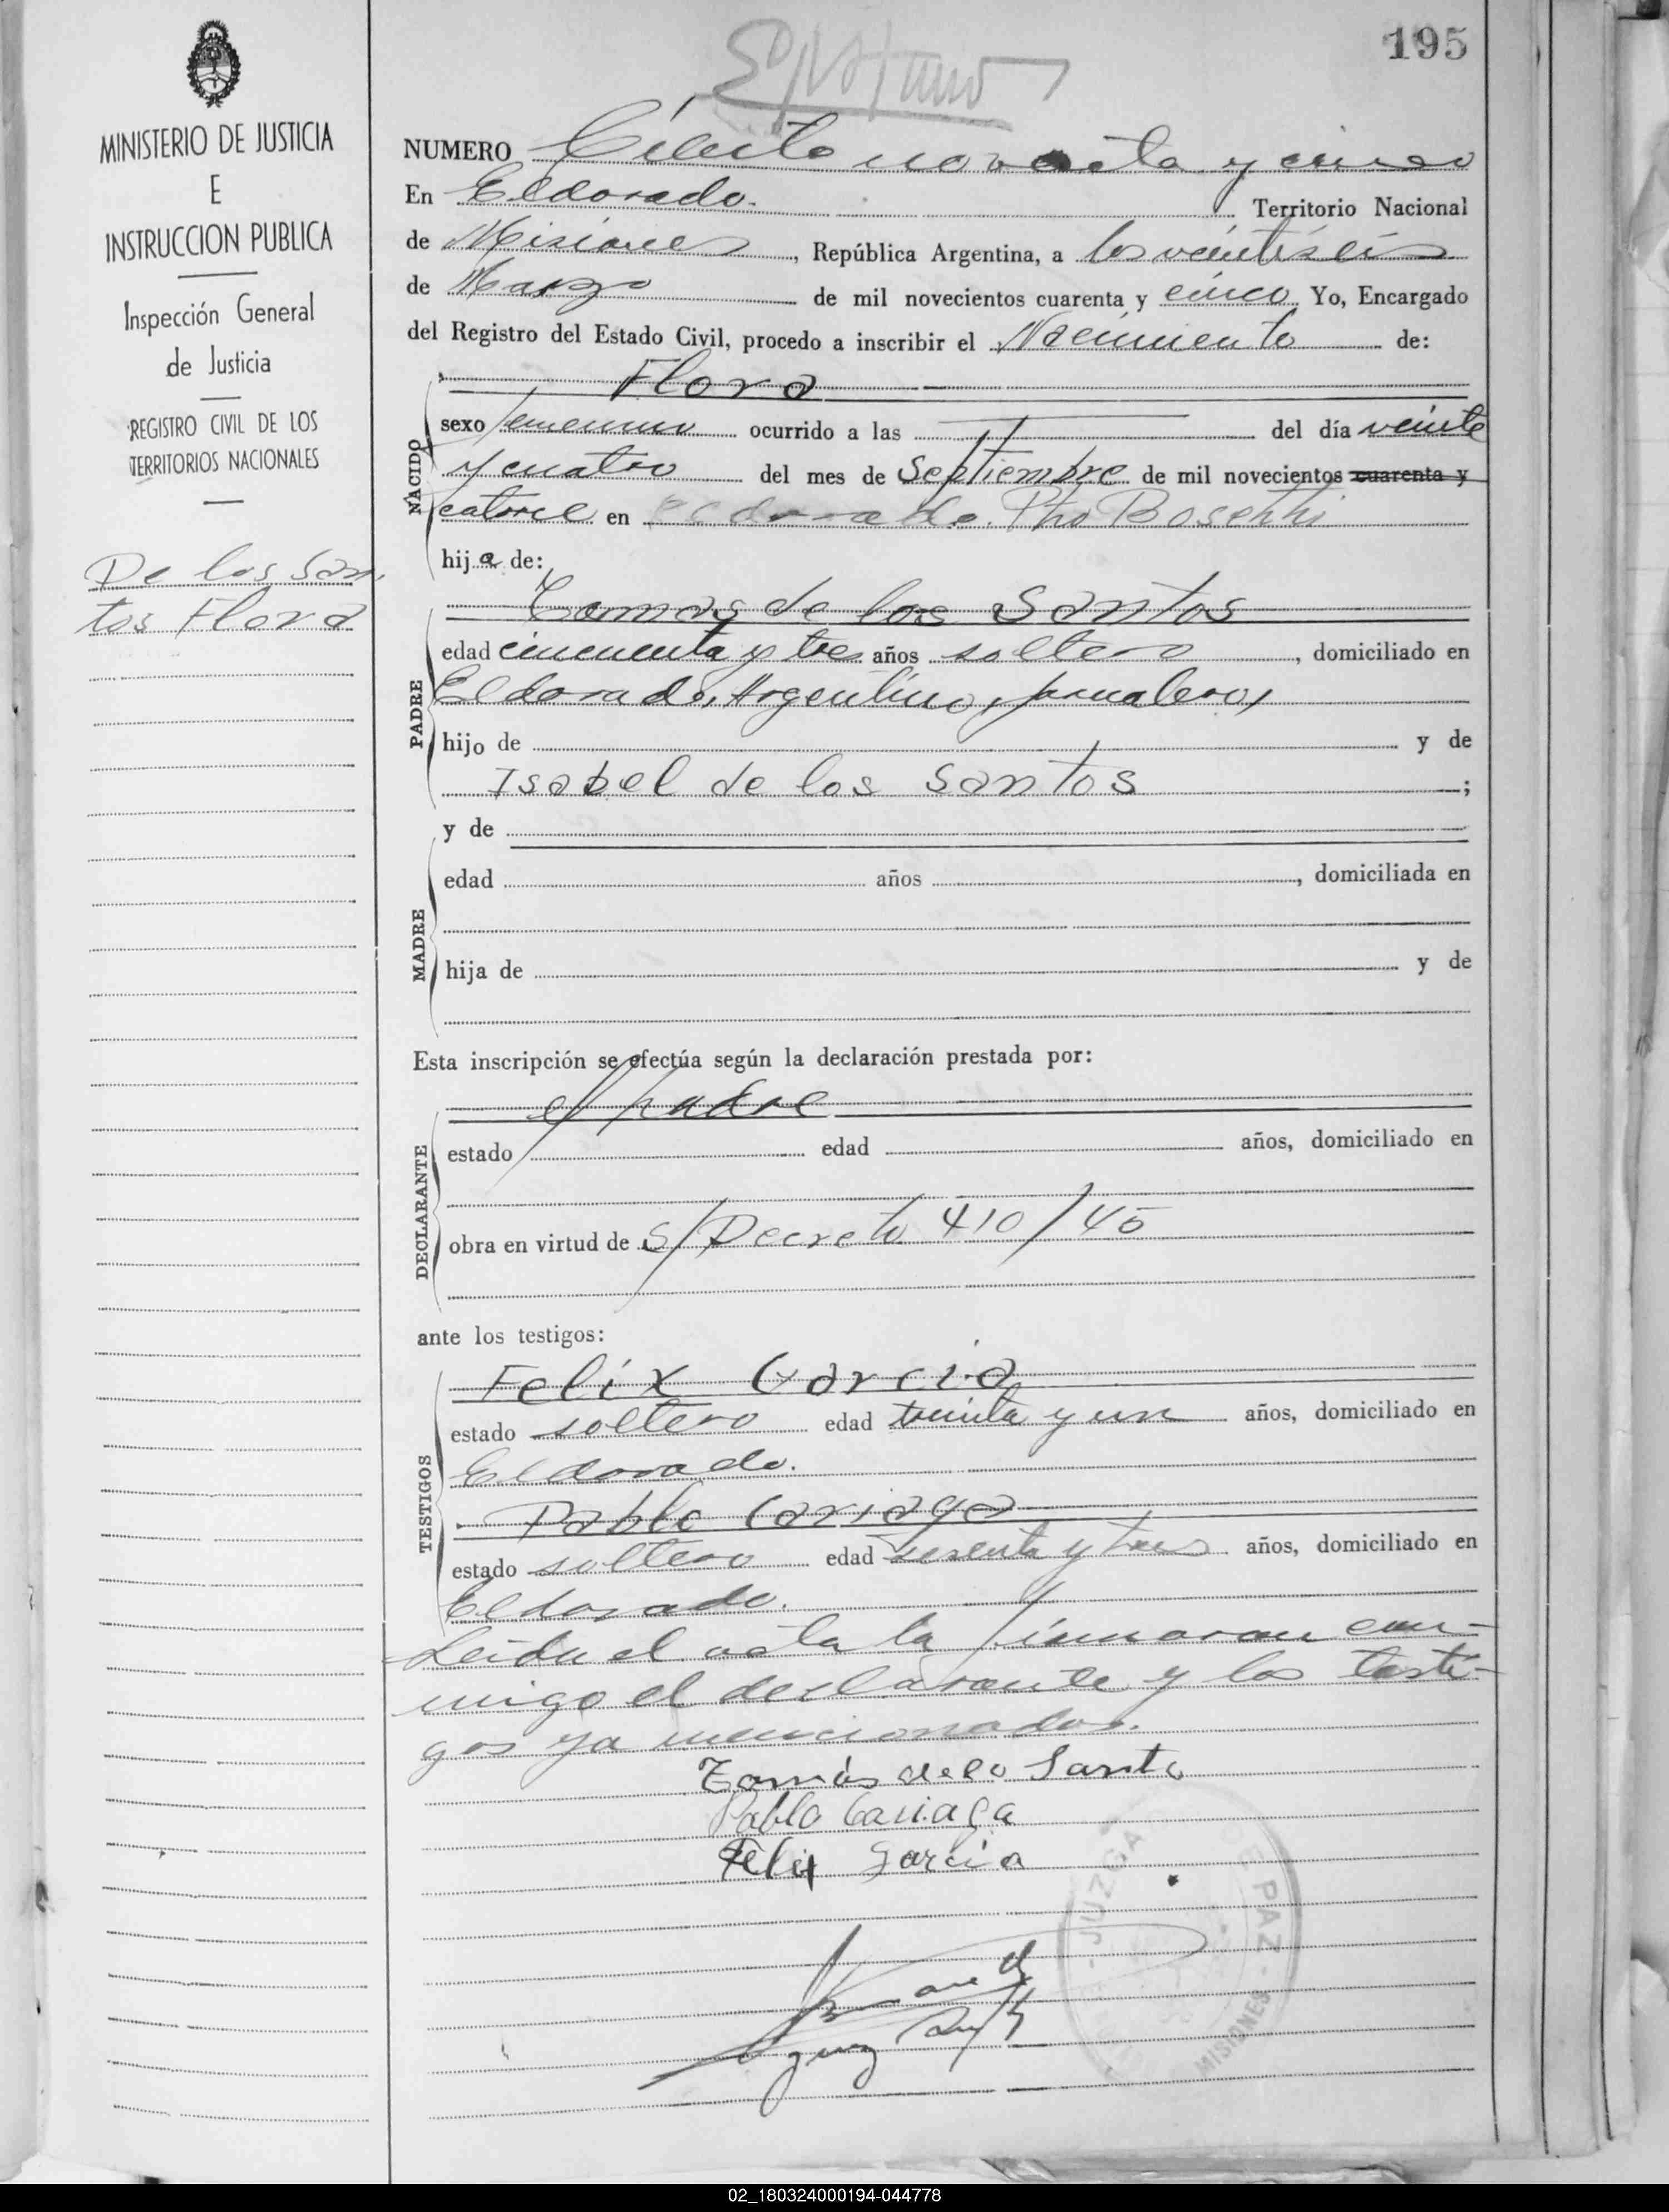 195
MINISTERIO DE JUSTICIA
E
INSTRUCCION PUBLICA
Inspección General
de Justicia
REGISTRO CIVIL DE LOS
TERRITORIOS NACIONALES
De los San
tos Flora
NUMERO Ciento noventa y cinco
En Eldorado. Territorio Nacional
de Misiones, República Argentina, a los veintiseis
de Marzo de mil novecientos cuarenta y cinco Yo, Encargado
del Registro del Estado Civil, procedo a inscribir el Nacimiento de:
NACIDO
Flora
sexo femenino ocurrido a las del día veinte
y cuatro del mes de Septiembre de mil novecientos cuarenta y
catorce en Eldorado. Pto Bosetti
hija de:
PADRE
Tomas de los Santos
edad cincuenta y tres años soltero, domiciliado en
Eldorado, Argentino, jornalero,
hijo de y de
Isabel de los Santos ;
MADRE
y de
edad años , domiciliada en
hija de y de
Esta inscripción se efectúa según la declaración prestada por:
DECLARANTE
el padre
estado edad años, domiciliado en
obra en virtud de S/Decreto 410/45
ante los testigos:
TESTIGOS
Felix Garcia
estado soltero edad treinta y un años, domiciliado en
Eldorado.
Pablo Cariaga
estado soltero edad sesenta y tres años, domiciliado en
Eldorado.
Leida el acta la firmaron con-
migo el declarante y los testi-
gos ya mencionados.
Tomás delo Santo
Pablo Cariaga
Felix Garcia
JUZGA E PAZ - MISIONES
02_180324000194-044778